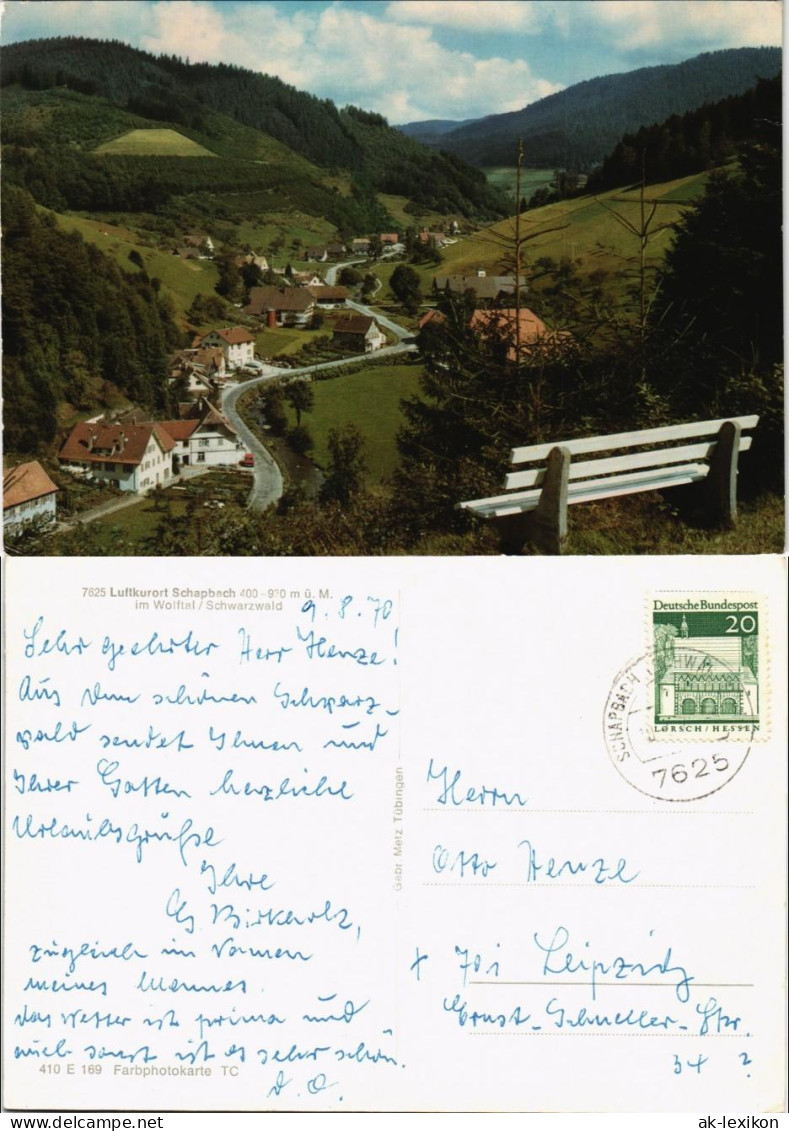 7625 Luftkurort Schapbach 400-920 m ü. M.
im Wolftal / Schwarzwald
9.8.70
Sehr geehrter Herr Henze!
Aus dem schönen Schwarz-
wald sendet Ihnen und
Ihrer Gattin herzliche
Urlaubsgrüße
Ihre
Birkholz,
zugleich im Namen
meines Mannes.
das Wetter ist prima und
auch sonst ist es sehr schön.
D. O.
410 E 169 Farbphotokarte TC
Gebr. Metz Tübingen
Deutsche Bundespost
20
LORSCH / HESSEN
SCHAPBACH
7625
Herrn
Otto Henze
x 701 Leipzig
Ernst-Schneller-Str.
34 ?
ak-ansichtskarten.de
ak-lexikon